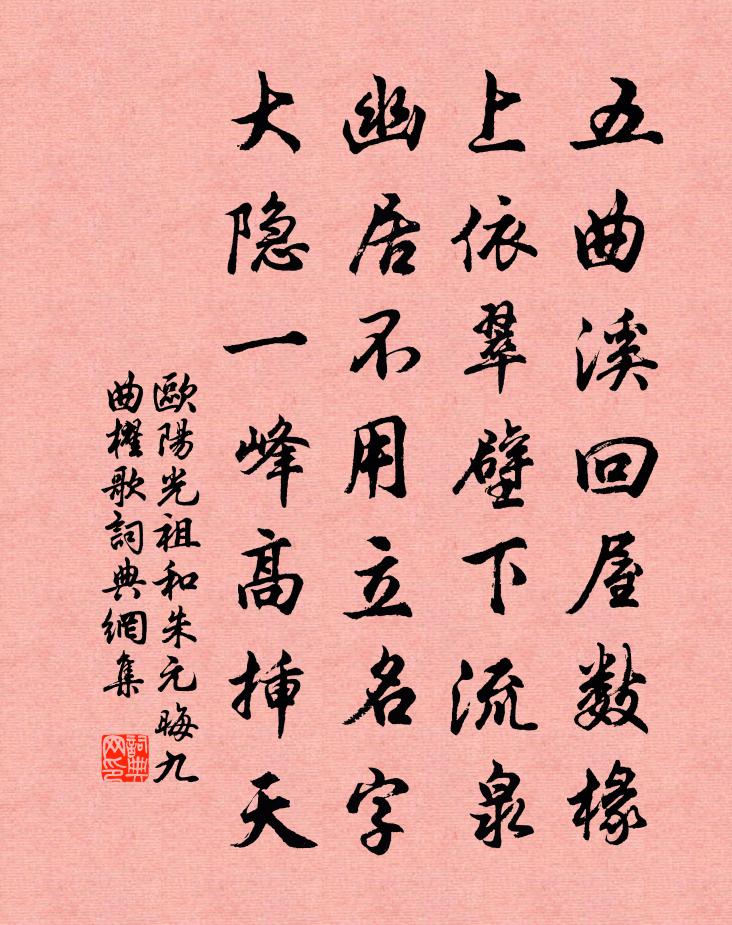 五曲溪回屋数椽
上依翠壁下流泉
幽居不用立名字
大隐一峰高插天
歐陽光祖和朱元晦九
曲櫂歌詞典網集
詞典网印